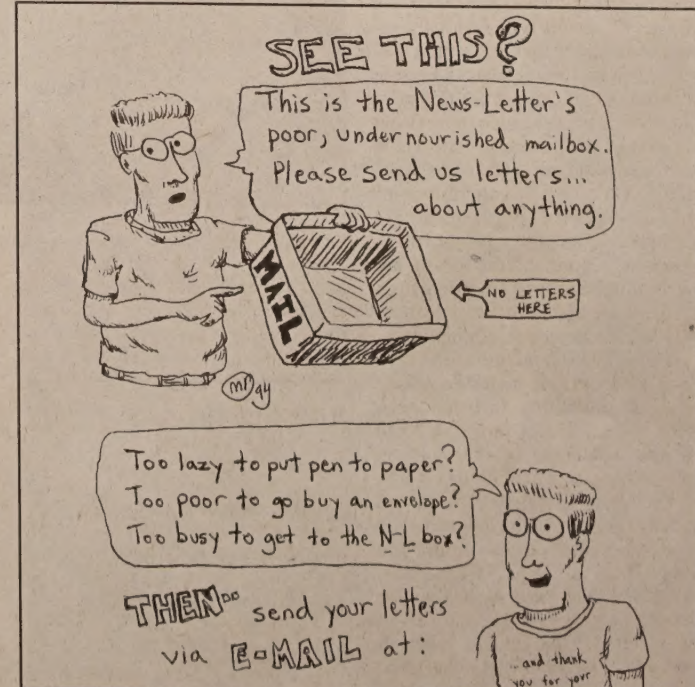 SEE THIS?
This is the News-Letter's
poor, undernourished mailbox.
Please send us letters...
about anything.
MAIL
NO LETTERS
HERE
Too lazy to put pen to paper?
Too poor to go buy an envelope?
Too busy to get to the N-L box?
THEN... send your letters
via E-MAIL at:
...and thank
you for your